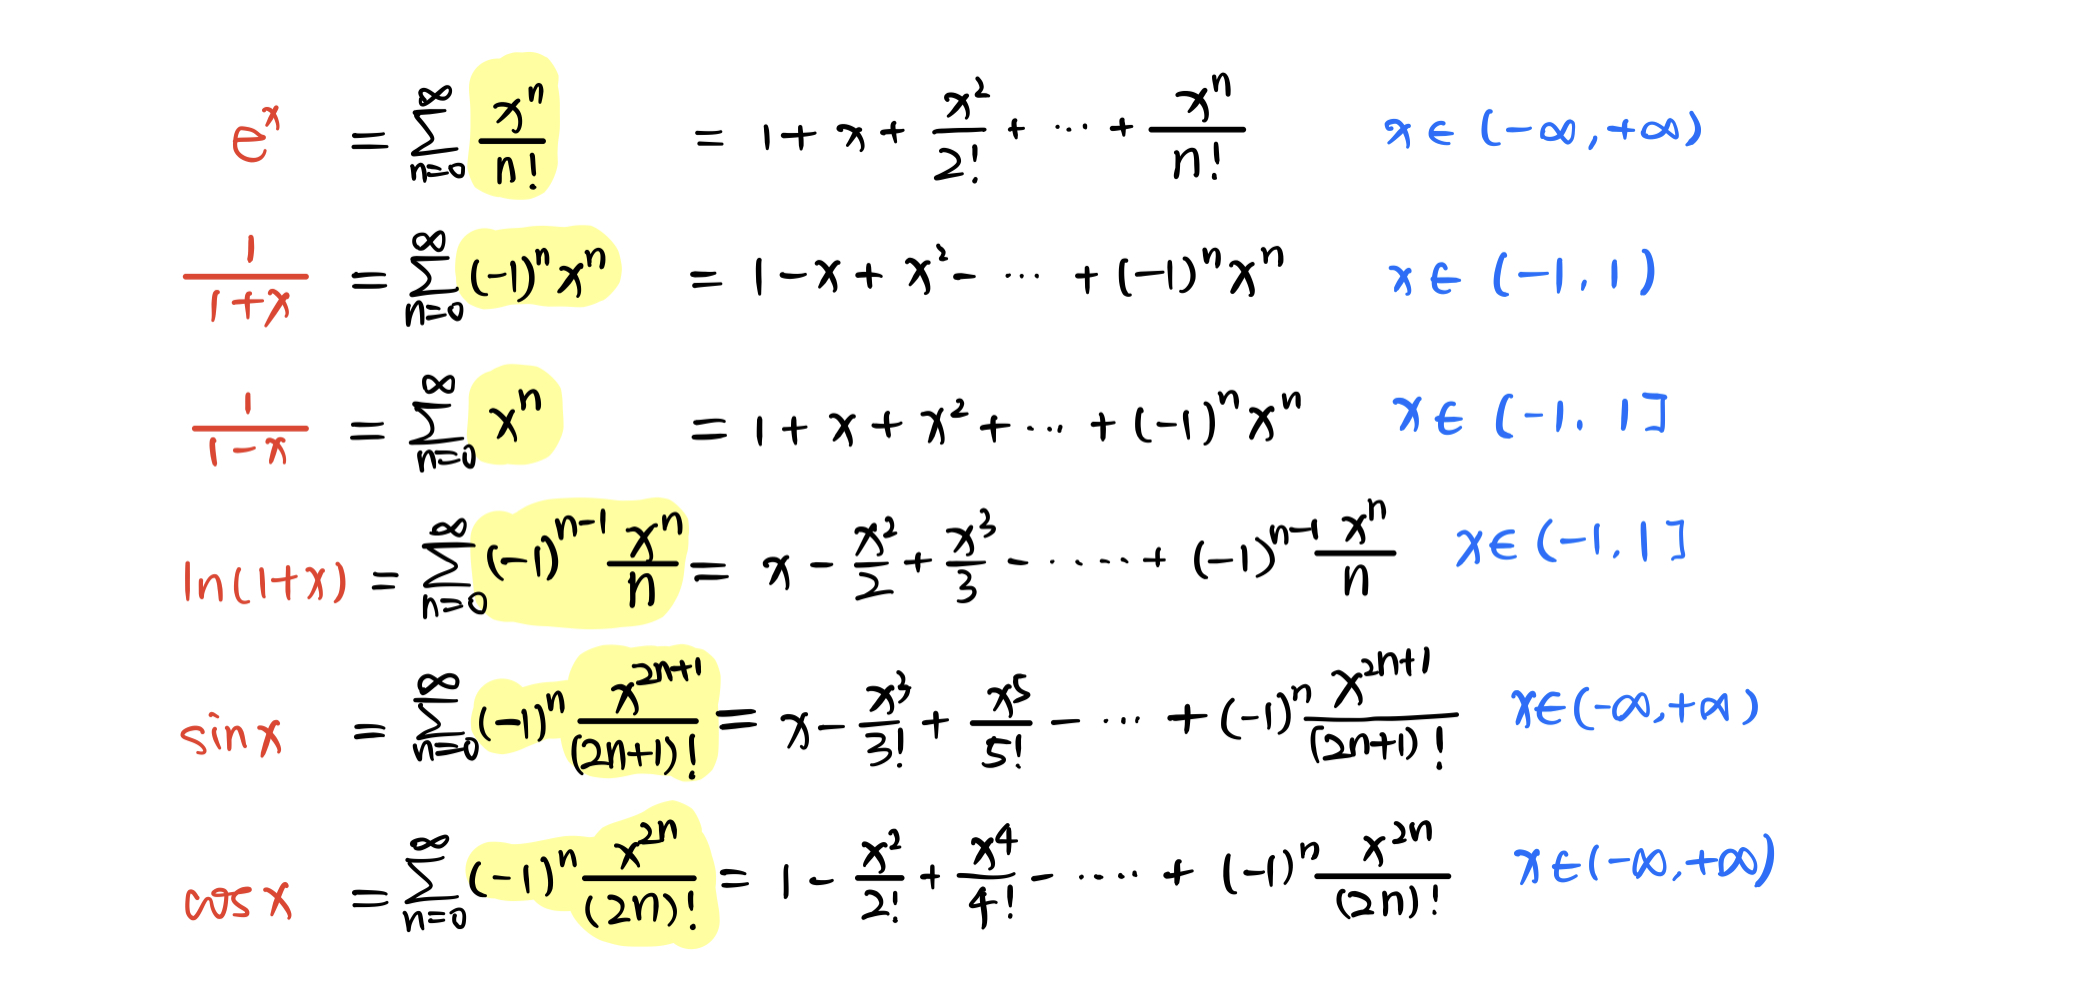 e^x = ∑_{n=0}^{∞} x^n/n! = 1 + x + x^2/2! + ⋯ + x^n/n! x ∈ (-∞, +∞)
1/(1+x) = ∑_{n=0}^{∞} (-1)^n x^n = 1 - x + x^2 - ⋯ + (-1)^n x^n x ∈ (-1, 1)
1/(1-x) = ∑_{n=0}^{∞} x^n = 1 + x + x^2 + ⋯ + (-1)^n x^n x ∈ (-1, 1]
ln(1+x) = ∑_{n=0}^{∞} (-1)^{n-1} x^n/n = x - x^2/2 + x^3/3 - ⋯⋯ + (-1)^{n-1} x^n/n x ∈ (-1, 1]
sin x = ∑_{n=0}^{∞} (-1)^n x^{2n+1}/(2n+1)! = x - x^3/3! + x^5/5! - ⋯ + (-1)^n x^{2n+1}/(2n+1)! x ∈ (-∞, +∞)
cos x = ∑_{n=0}^{∞} (-1)^n x^{2n}/(2n)! = 1 - x^2/2! + x^4/4! - ⋯⋯ + (-1)^n x^{2n}/(2n)! x ∈ (-∞, +∞)